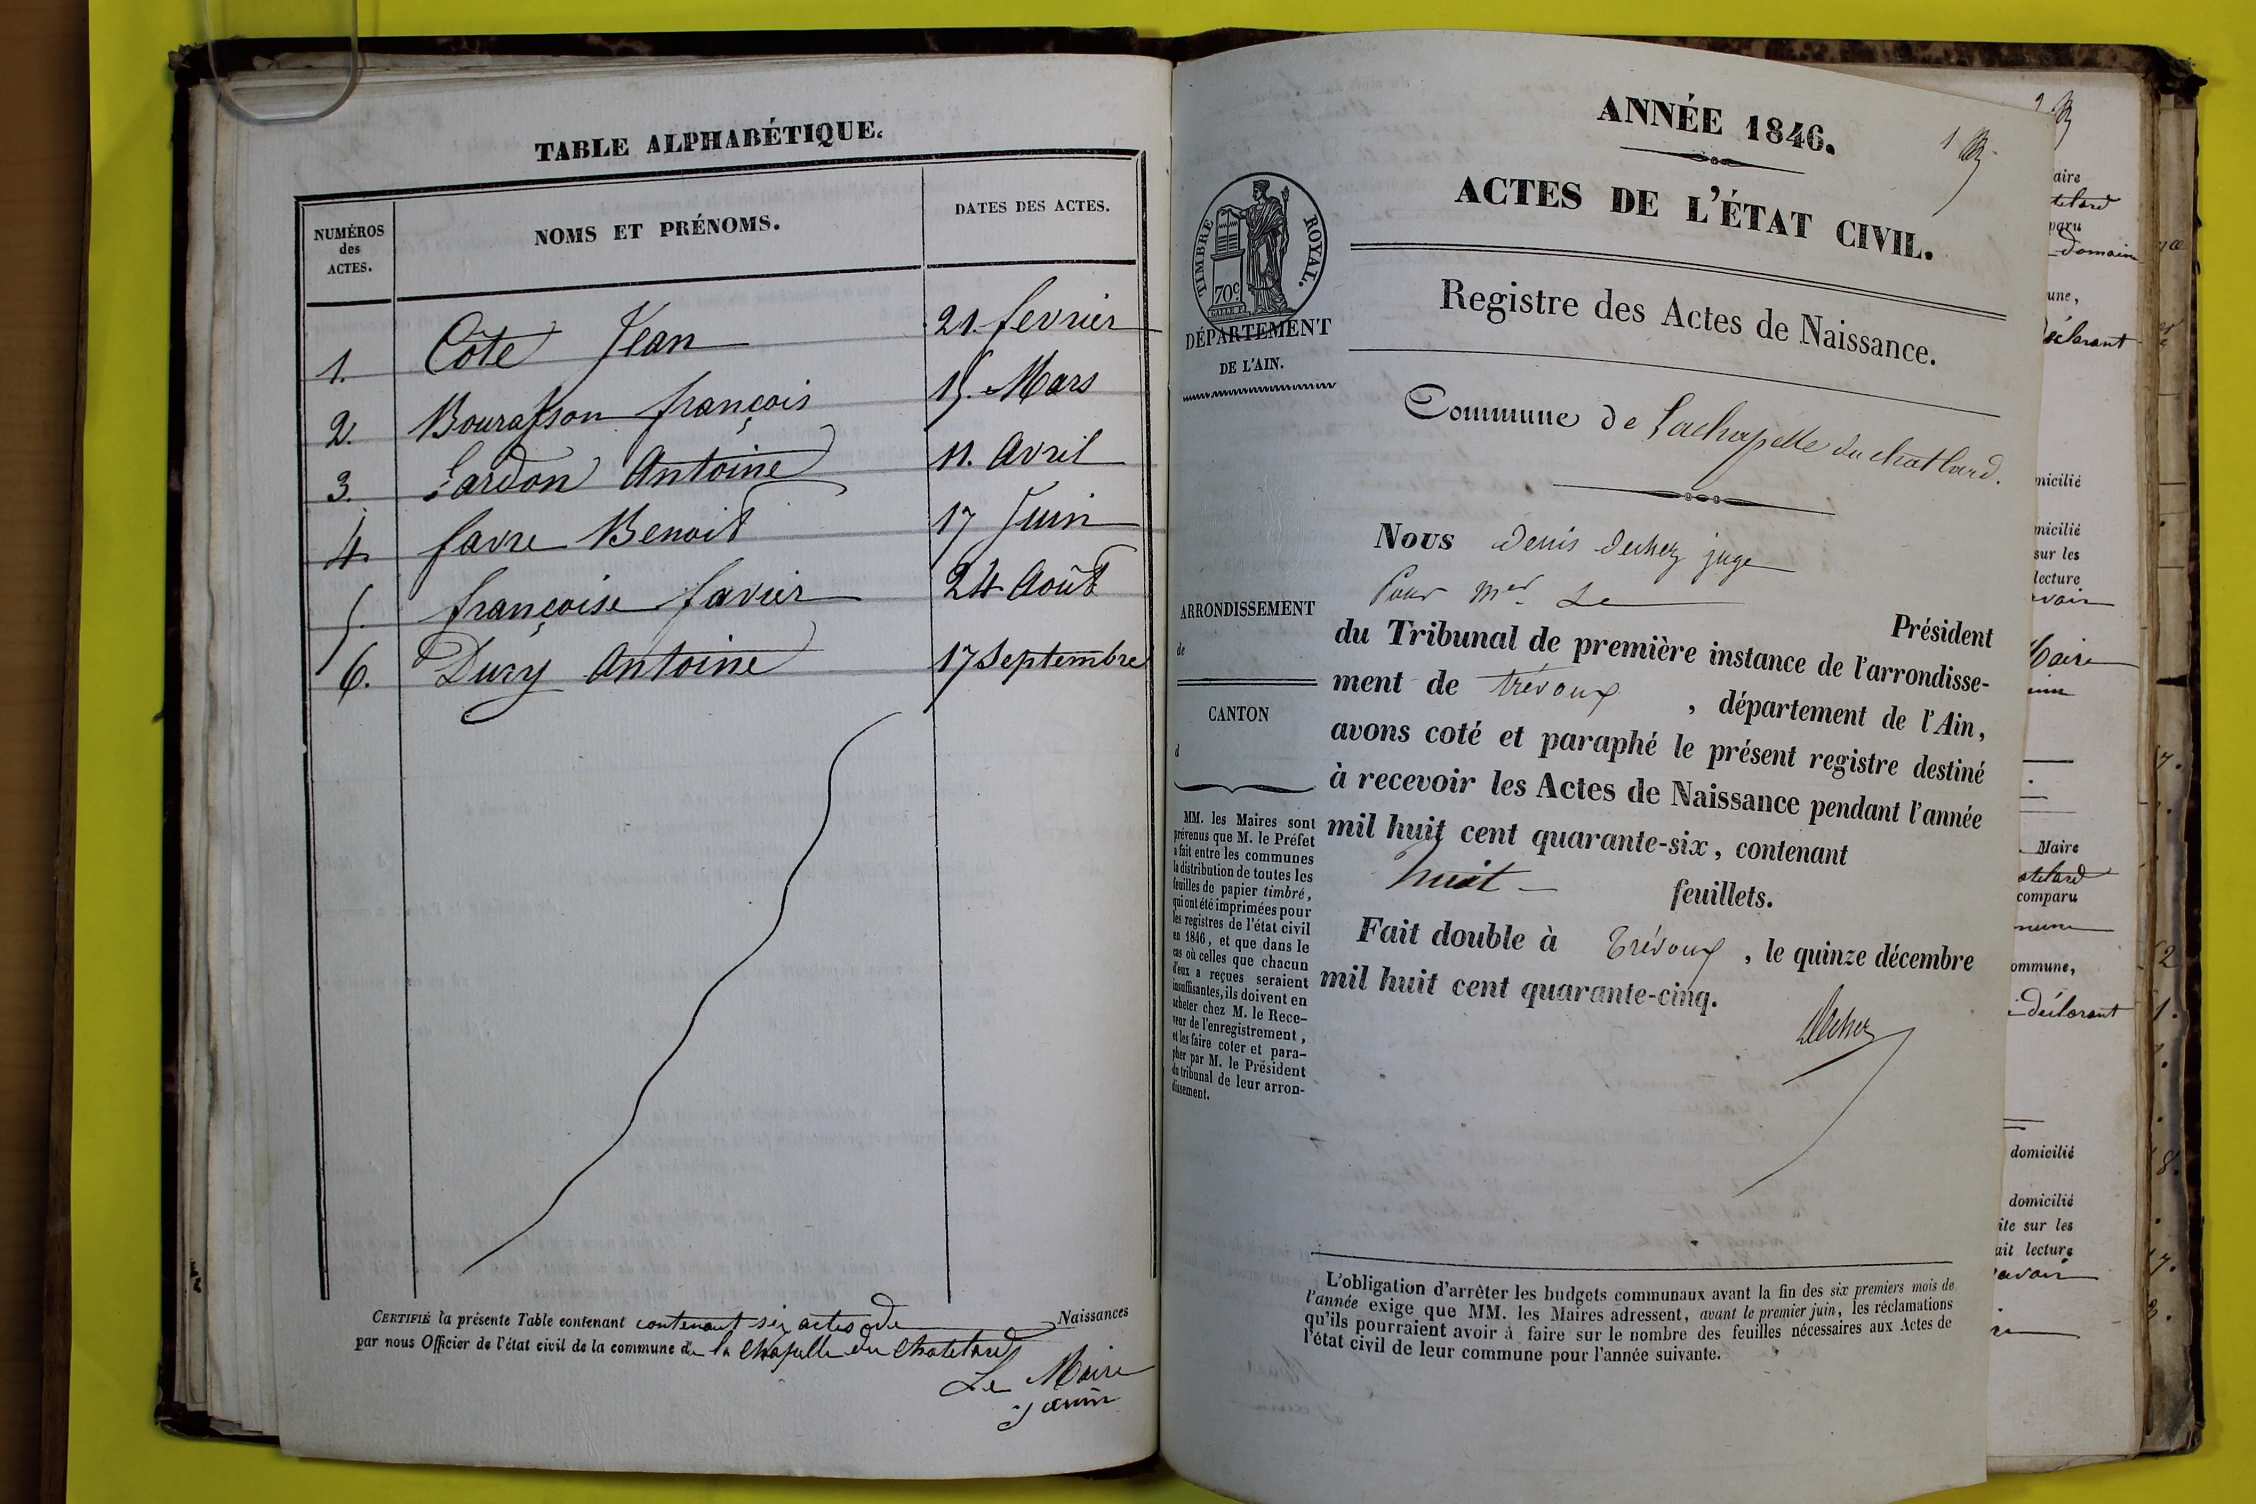 TABLE ALPHABÉTIQUE.
NUMÉROS
des
ACTES.
NOMS ET PRÉNOMS.
DATES DES ACTES.
1. Côte Jean 21. fevrier
2. Bourasson françois 15. Mars
3. Lardon Antoine 11. Avril
4. favre Benoit 17 Juin
5. françoise favier 24 Août
6. Dury Antoine 17 Septembre
CERTIFIÉ la présente Table contenant contenant six actes de Naissances
par nous Officier de l'état civil de la commune de la Chapelle du Chatelard
Le Maire
ANNÉE 1846.
1
ACTES DE L'ÉTAT CIVIL.
TIMBRE ROYAL.
70c
DÉPARTEMENT
DE L'AIN.
Registre des Actes de Naissance.
Commune de Lachapelle du chatlard.
Nous Denis Dechez juge
Pour Mr. Le
Président
du Tribunal de première instance de l'arrondisse-
ment de trévoux, département de l'Ain,
avons coté et paraphé le présent registre destiné
à recevoir les Actes de Naissance pendant l'année
mil huit cent quarante-six, contenant
huit feuillets.
Fait double à Trévoux, le quinze décembre
mil huit cent quarante-cinq.
Dechez
ARRONDISSEMENT
de
CANTON
d
MM. les Maires sont
prévenus que M. le Préfet
a fait entre les communes
la distribution de toutes les
feuilles de papier timbré,
qui ont été imprimées pour
les registres de l'état civil
en 1846, et que dans le
cas où celles que chacun
d'eux a reçues seraient
insuffisantes, ils doivent en
acheter chez M. le Rece-
veur de l'enregistrement,
et les faire coter et para-
pher par M. le Président
du tribunal de leur arron-
dissement.
L'obligation d'arrêter les budgets communaux avant la fin des six premiers mois de
l'année exige que MM. les Maires adressent, avant le premier juin, les réclamations
qu'ils pourraient avoir à faire sur le nombre des feuilles nécessaires aux Actes de
l'état civil de leur commune pour l'année suivante.
une,
sur les
lecture
Maire
comparu
ommune,
déclarant
domicilié
domicilié
ite sur les
ait lecture